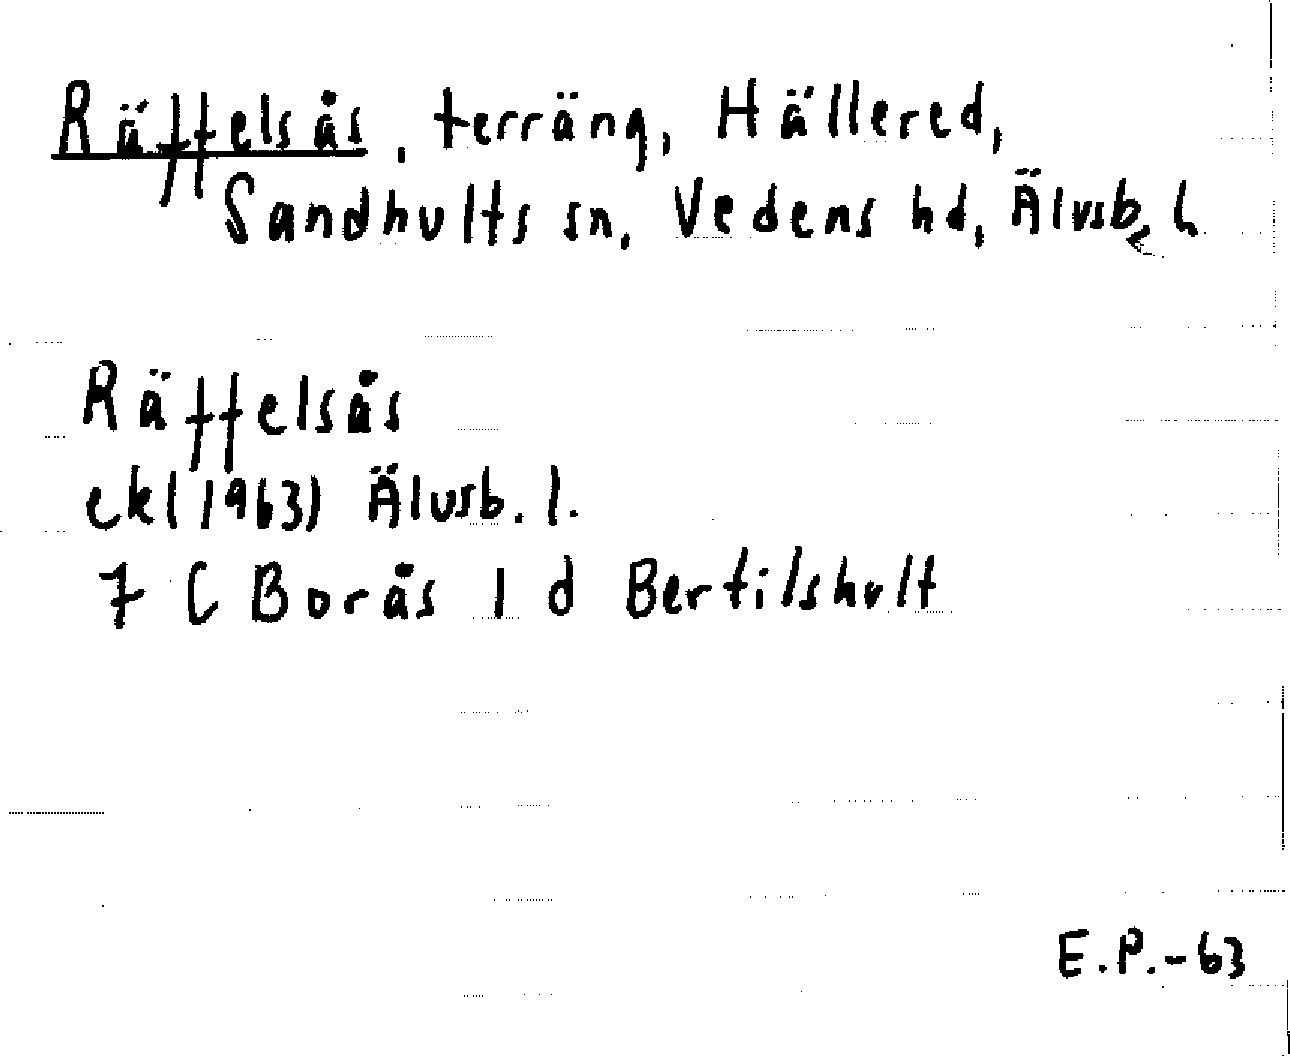 Räffelsås, terräng, Hällered,
Sandhults sn, Vedens hd, Älvsb. l.
Räffelsås
ek(1963) Älvsb. l.
7 C Borås 1 d Bertilshult
E.P.-63